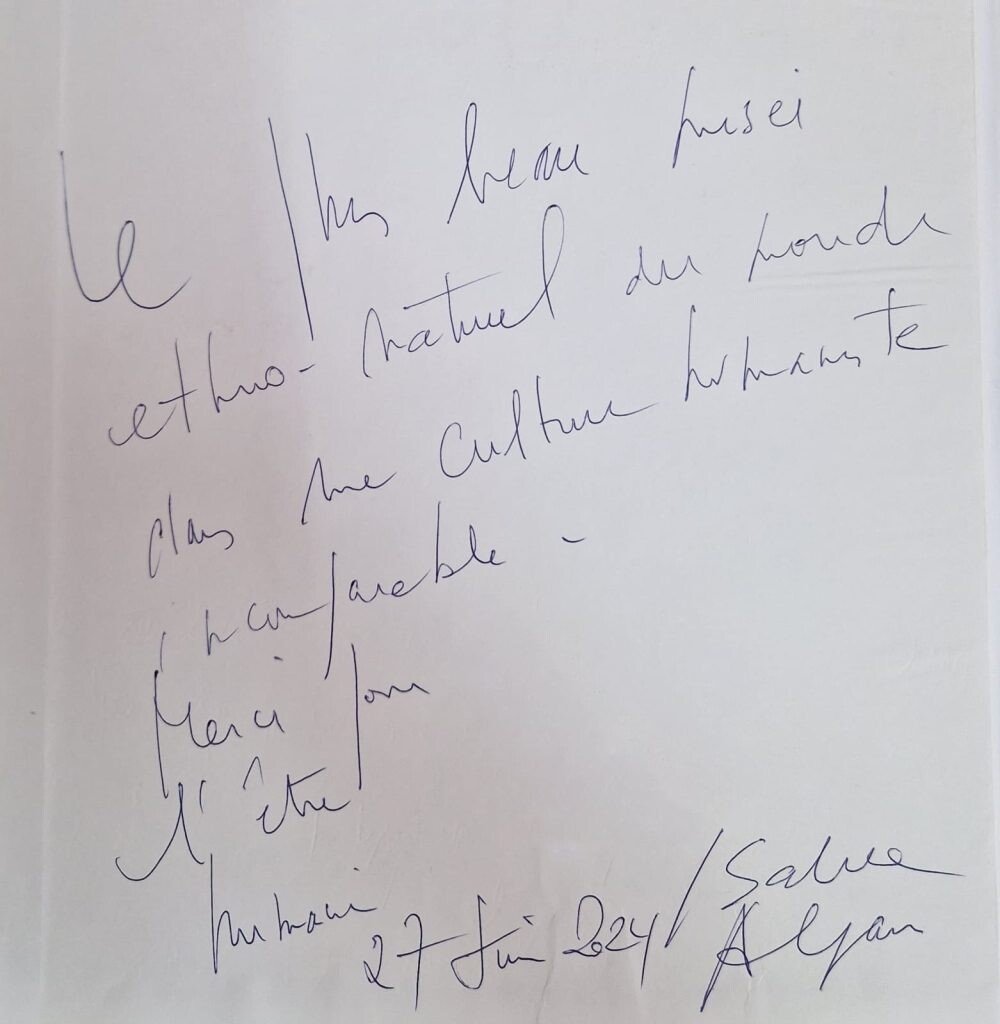 Le plus beau musée
ethno-naturel du monde
dans une culture humaniste
incomparable -
Merci pour
l'être
humain
27 Juin 2024 /